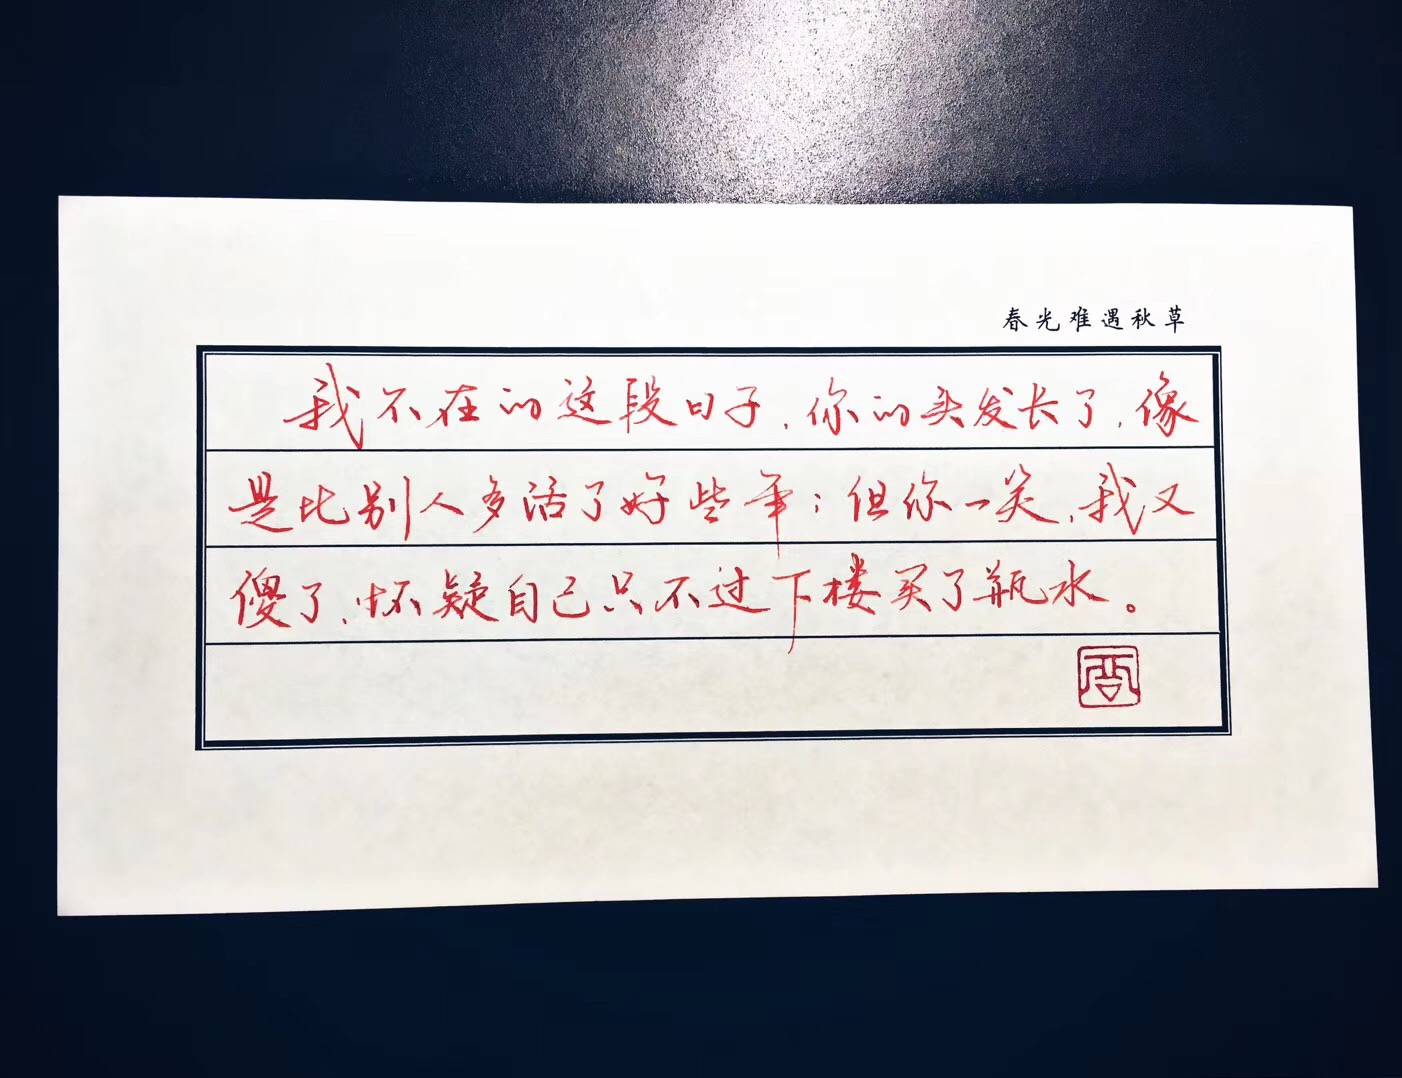 春光难遇秋草
我不在的这段日子，你的头发长了，像
是比别人多活了好些年；但你一笑，我又
傻了，怀疑自己只不过下楼买了瓶水。